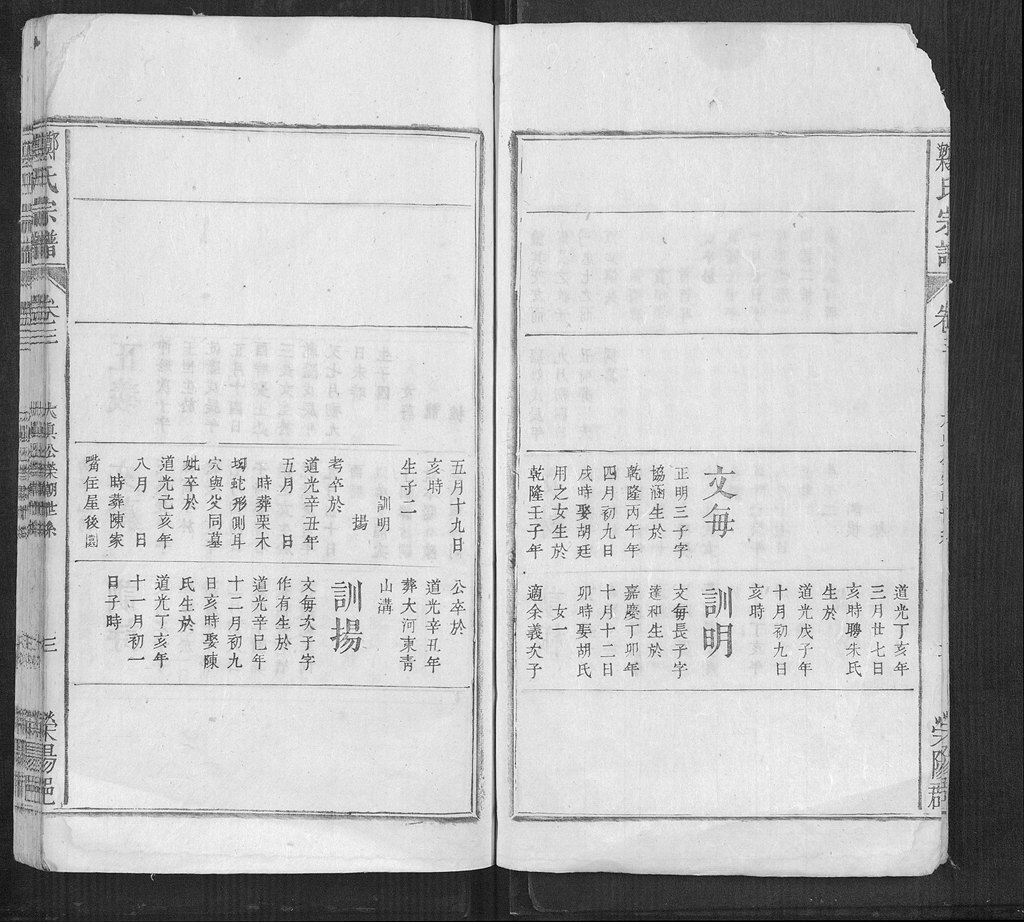 鄭氏宗譜
卷三
文每
正明三子字
協涵生於
乾隆丙午年
四月初九日
戌時娶胡廷
用之女生於
乾隆壬子年
道光丁亥年
三月廿七日
亥時聘朱氏
生於
道光戊子年
十月初九日
亥時
訓明
文每長子字
達和生於
嘉慶丁卯年
十月十二日
卯時娶胡氏
女一
適余義次子
五月十九日
亥時
生子二
訓明
揚
考卒於
道光辛丑年
五月 日
時葬栗木
坳蛇形側耳
穴與父同墓
妣卒於
道光己亥年
八月 日
時葬陳家
嘴住屋後園
公卒於
道光辛丑年
葬大河東青
山溝
訓揚
文每次子字
作有生於
道光辛巳年
十二月初九
日亥時娶陳
氏生於
道光丁亥年
十一月初一
日子時
鄭氏宗譜
卷三
三